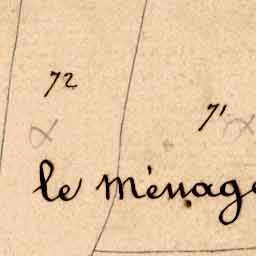 72
71
le Ménage